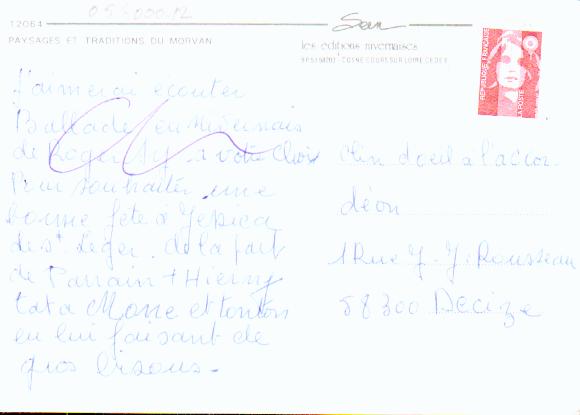 12064
PAYSAGES ET TRADITIONS DU MORVAN
les éditions nivernaises
REPUBLIQUE FRANÇAISE
LA POSTE
J'aimerai écouter
Ballade en Nivernais
de Roger à votre Choix
Pour souhaiter une
bonne fête à Jessica
de St Leger de la part
de Parrain +
tata et tonton
en lui faisant de
gros bisous -
Clin d'oeil à l'accor
déon
1 Rue J. J. Rousseau
58300 Decize